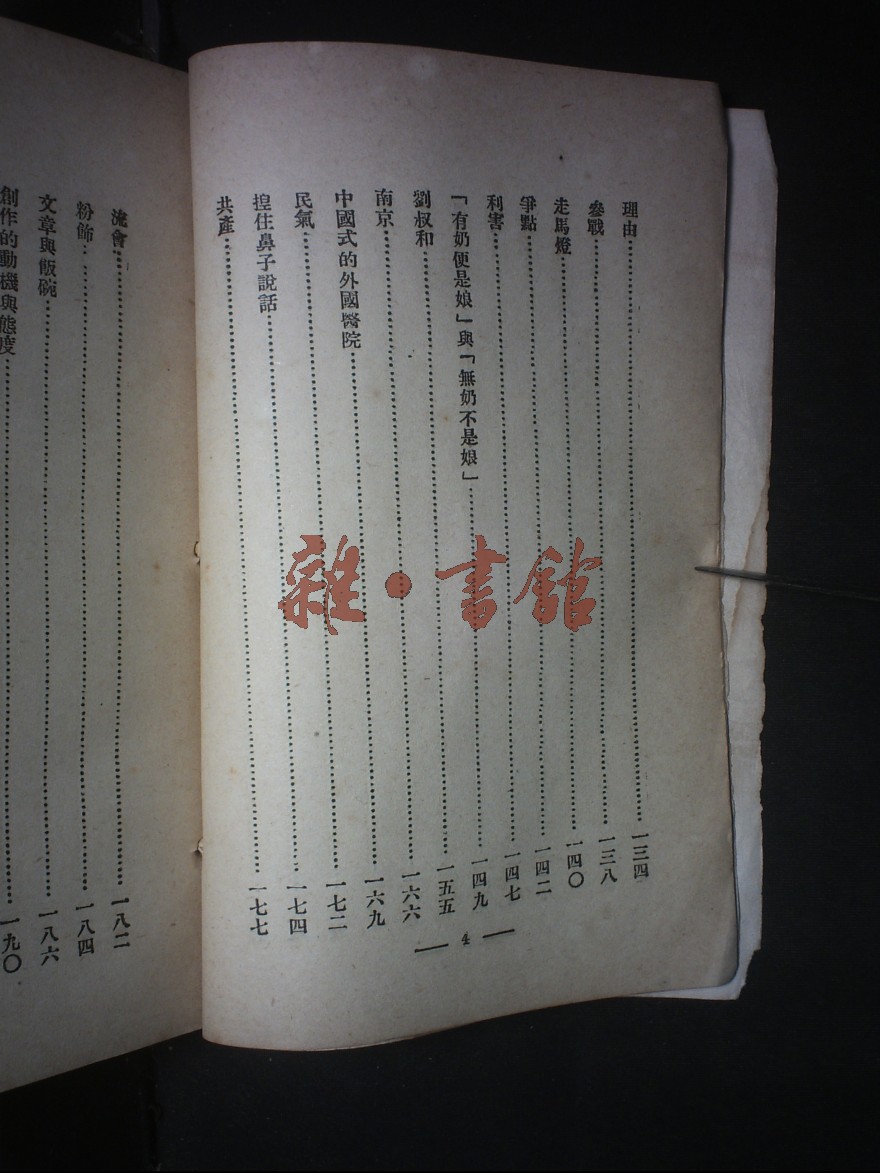 理由……一三四
參戰……一三八
走馬燈……一四〇
爭點……一四二
利害……一四七
「有奶便是娘」與「無奶不是娘」……一四九
劉叔和……一五五
南京……一六六
中國式的外國醫院……一六九
民氣……一七二
揑住鼻子說話……一七四
共產……一七七
4
流會……一八二
粉飾……一八四
文章與飯碗……一八六
創作的動機與態度……一九〇
雜·書館